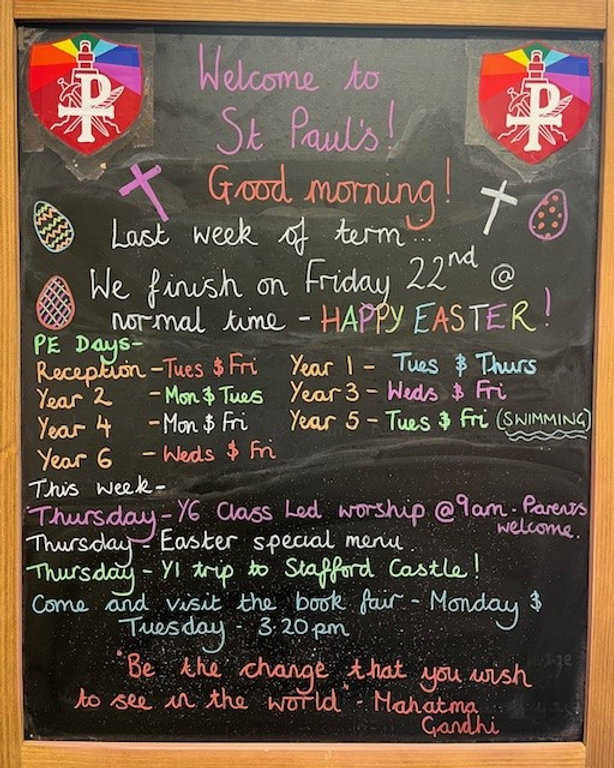 Welcome to
St Paul's!
Good morning!
Last week of term...
We finish on Friday 22nd @
normal time - HAPPY EASTER!
PE Days-
Reception - Tues $ Fri
Year 1 - Tues $ Thurs
Year 2 - Mon $ Tues
Year 3 - Weds $ Fri
Year 4 - Mon $ Fri
Year 5 - Tues $ Fri (SWIMMING)
Year 6 - Weds $ Fri
This week-
Thursday - Y6 Class Led worship @9am. Parents
welcome.
Thursday - Easter special menu
Thursday - Y1 trip to Stafford Castle!
Come and visit the book fair - Monday $
Tuesday - 3.20pm
"Be the change that you wish
to see in the world" - Mahatma
Gandhi